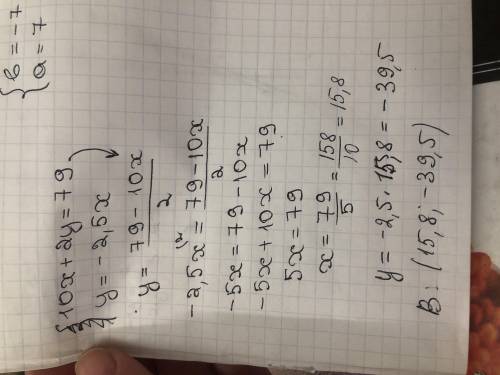 { в = -7
а = 7
{ 10x + 2y = 79
y = -2,5x
y = 79 - 10x / 2
-2,5x = 79 - 10x / 2
-5x = 79 - 10x
-5x + 10x = 79
5x = 79
x = 79/5 = 158/10 = 15,8
y = -2,5 · 15,8 = -39,5
В: (15,8; -39,5)